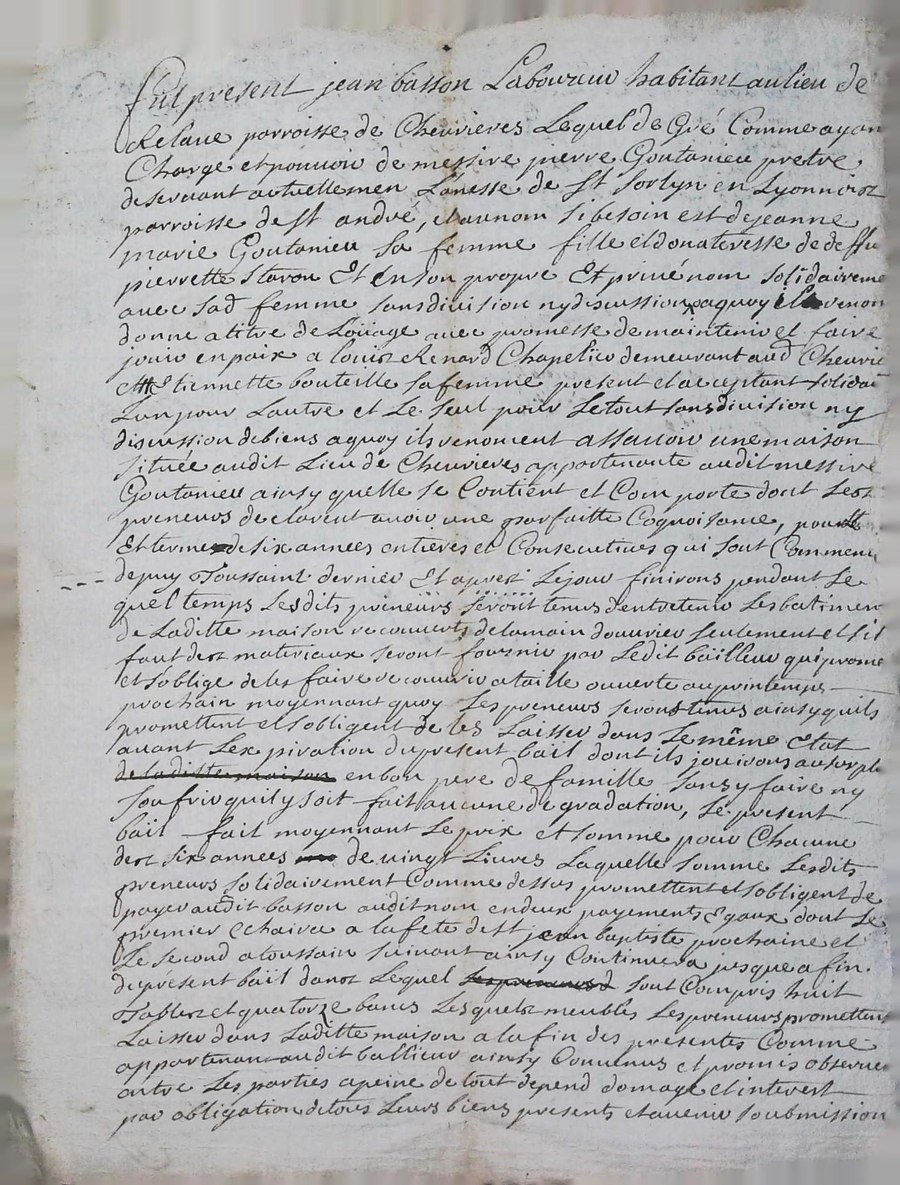 fut present jean basson Laboureur habitant au lieu de
Relave parroisse de Cheuvrieres Lequel de Gré Comme ayan
Charge et pouvoir de messire pierre Goutanieu pretre
deservant actuellemen Lanesse de St Sorlyn en Lyonnoist
parroisse de St andré, et au nom si besoin est de jeanne
marie Goutanieu sa femme fille et donateresse de deffu
pierrette Et en son propre Et privé nom solidaireme
avec sad femme sans division ny discussion aquoy il venon
donne a titre de Loüage avec promesse de maintenir et faire
jouir en paix a louis Renard Chapelier demeurant aud Cheuvri
et Etiennette bouteille sa femme present et acceptant solidai
Lun pour Lautre et Le seul pour Le tout sans division ny
discussion de biens a quoy ils renoncent assavoir une maison
situeé audit Lieu de Cheuvrieres appartenante audit messire
Goutanieu ainsy quelle se Contient et Comporte dont Les
preneurs declarent avoir une parfaitte Coqnoisance, pour
Et terme de six années entieres et Consecutives qui sont Commenc
depuy Toussaint dernier Et apres Le jour finirons pendant Le
quel temps Lesdits preneurs seront tenus dentretenir Les batimen
de Laditte maison recouverts de la main douvrier seulement et sil
faut des materiaux seront fournir par Ledit bailleur qui prome
et soblige de les faire recouvrir a taille ouverte au printemps
prochain moyennant quoy Les preneurs seront tenus ainsy quils
promettent et sobligent de les Laisser dans Le même Etat
avant Lexpiration du present bail dont ils jouirons au surplu
de laditte maison en bon pere de famille sans y faire ny
soufrir quil y soit fait aucune degradation, Le present
bail fait moyennant Le prix et somme pour Chacune
des six années de vingt Livres Laquelle somme Lesdits
preneurs solidairement Comme dessus promettent et sobligent de
payer audit basson audit nom en deux payements Egaux dont Le
premier Echaira a la fete de St jean baptiste prochaine et
Le second a toussain suivant ainsy Continuera jusque a fin
de présent bail dans Lequel les preneurs sont Compris huit
Tables et quatorze bancs Lesquels meubles Les preneurs promettent
Laisser dans Laditte maison a la fin des presentes Comme
appartenant audit ballieur ainsy Convenus et promis observer
entre Les parties a peine de tout depend domage et interest
par obligation de tous Leurs biens presents et avenir soubmission